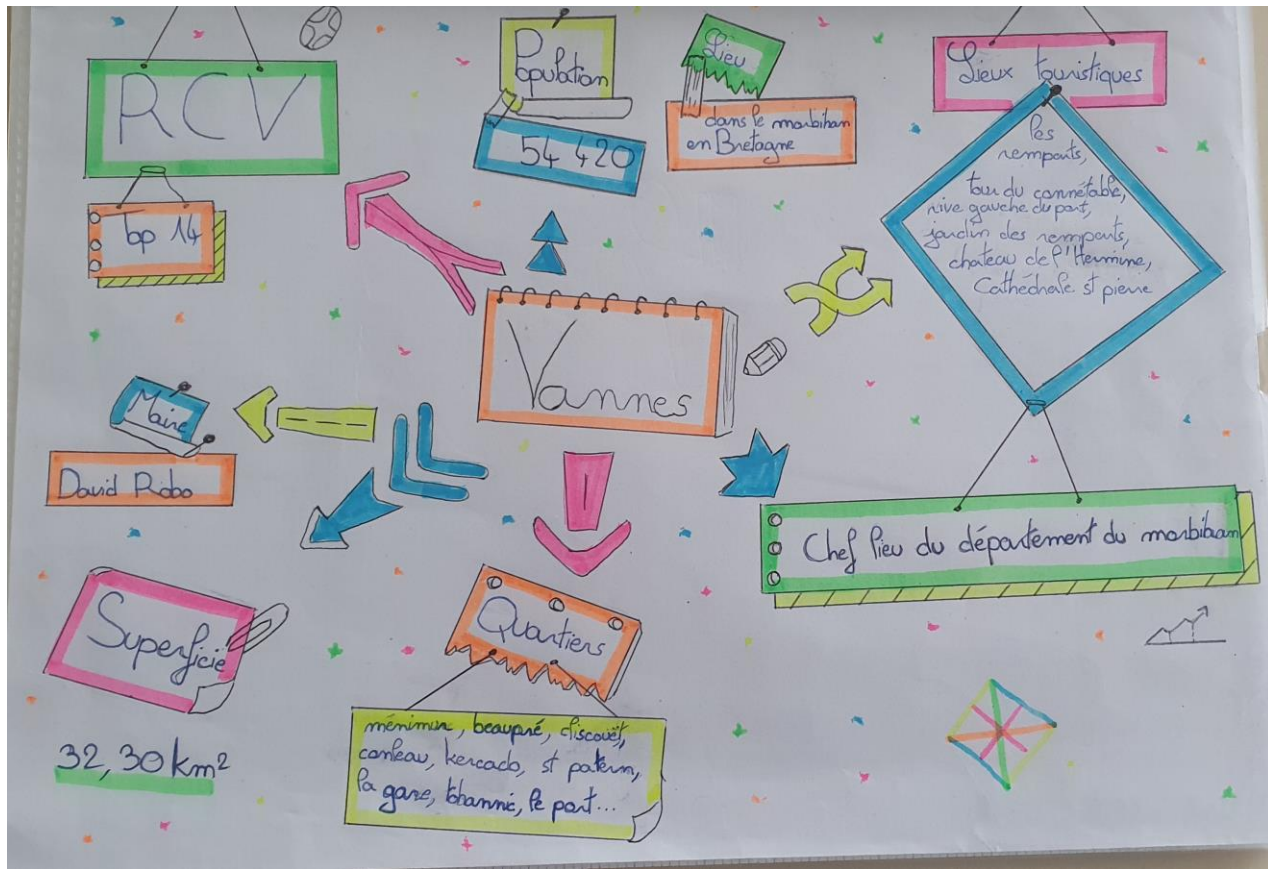 RCV
Top 14
Population
54 420
Lieu
dans le morbihan
en Bretagne
Lieux touristiques
les
remparts,
tour du connétable,
rive gauche du port,
jardin des remparts,
chateau de l'Hermine,
Cathédrale st pierre
Vannes
Maire
David Robo
Chef lieu du département du morbihan
Superficie
32,30 km²
Quartiers
ménimur, beaupré, cliscouët,
conleau, kercado, st patern,
la gare, tohannic, le port...